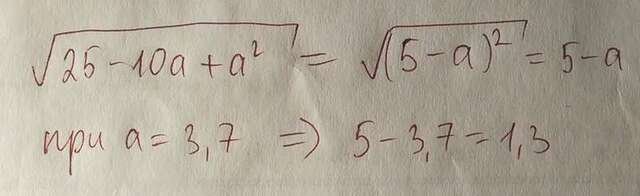 √(25 - 10a + a²) = √((5 - a)²) = 5 - a
при a = 3,7 ⇒ 5 - 3,7 = 1,3